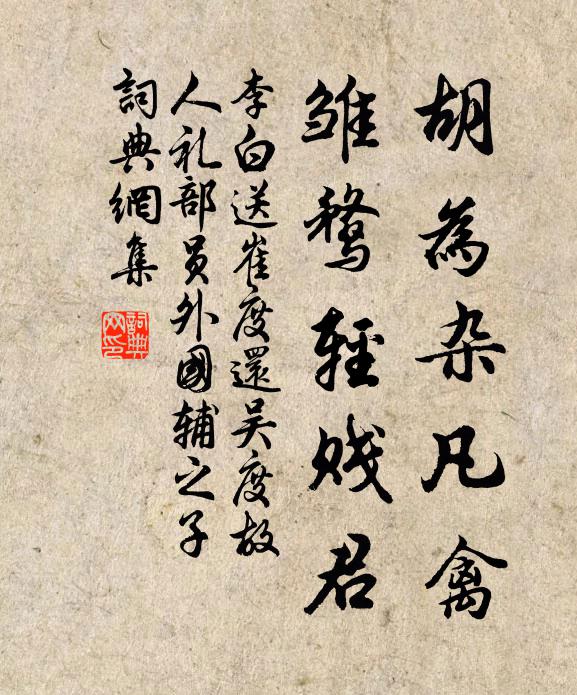 胡為杂凡禽
雏鹜轻贱君
李白送崔度還吴度故
人礼部员外國辅之子
詞典網集
詞典
网印